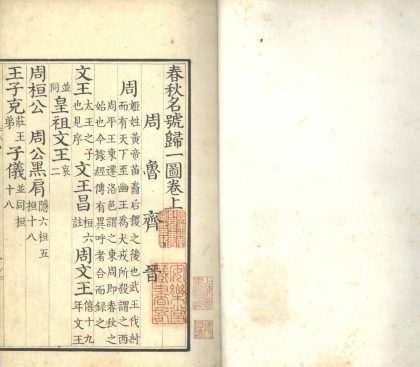 春秋名號歸一圖卷上
周 魯 齊 晉
周 姬姓黃帝苗裔后稷之後也武王伐紂
而有天下至幽王為犬戎所殺謂之西
周平王東遷洛邑謂之東周即春秋之
始也今據經傳有異呼者合而録之
文王 太王之子也見序 文王昌 桓六註 周文王 僖十九年文王
並同 皇祖文王 哀二
周桓公 周公黑肩 隱六桓五桓十八
王子克 莊王弟 子儀 並同桓十八